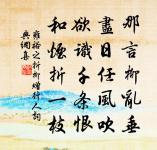 那言柳亂垂
盡日任風吹
欲識千条恨
和煙折一枝
雍裕之折柳贈行人詞
典網集